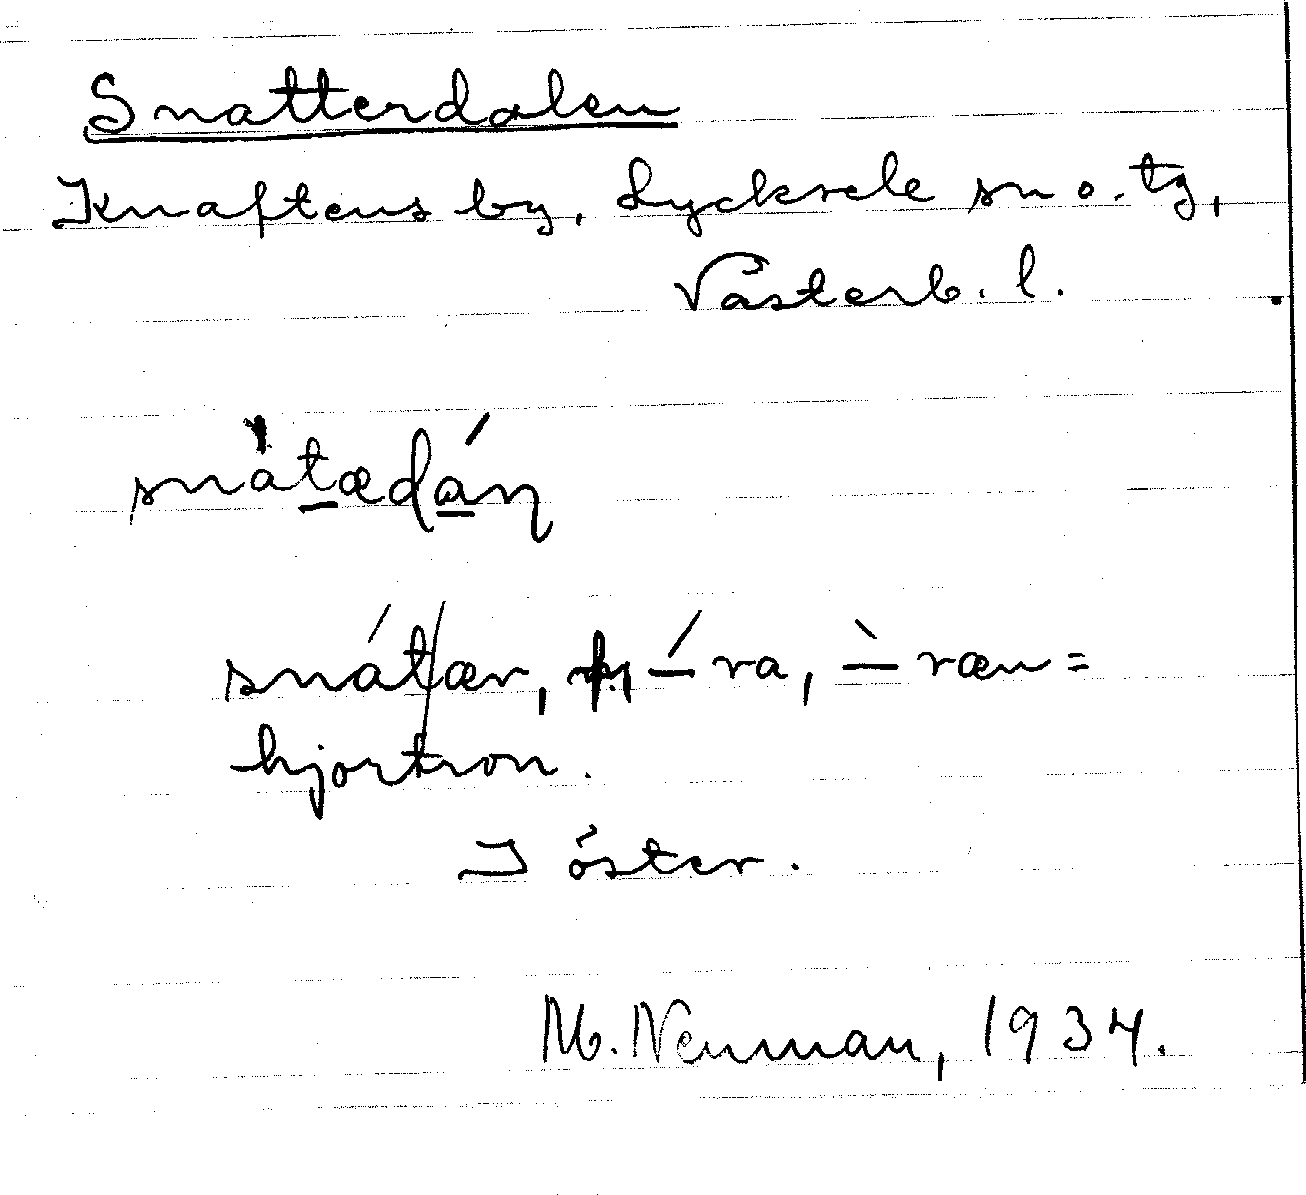 Snatterdalen
Knaftens by, Lycksele sn o. tg,
Västerb. l.
snàtædáɳ
snátær, –́ ra, –̀ ræn =
hjortron.
I öster.
M. Neuman, 1934.